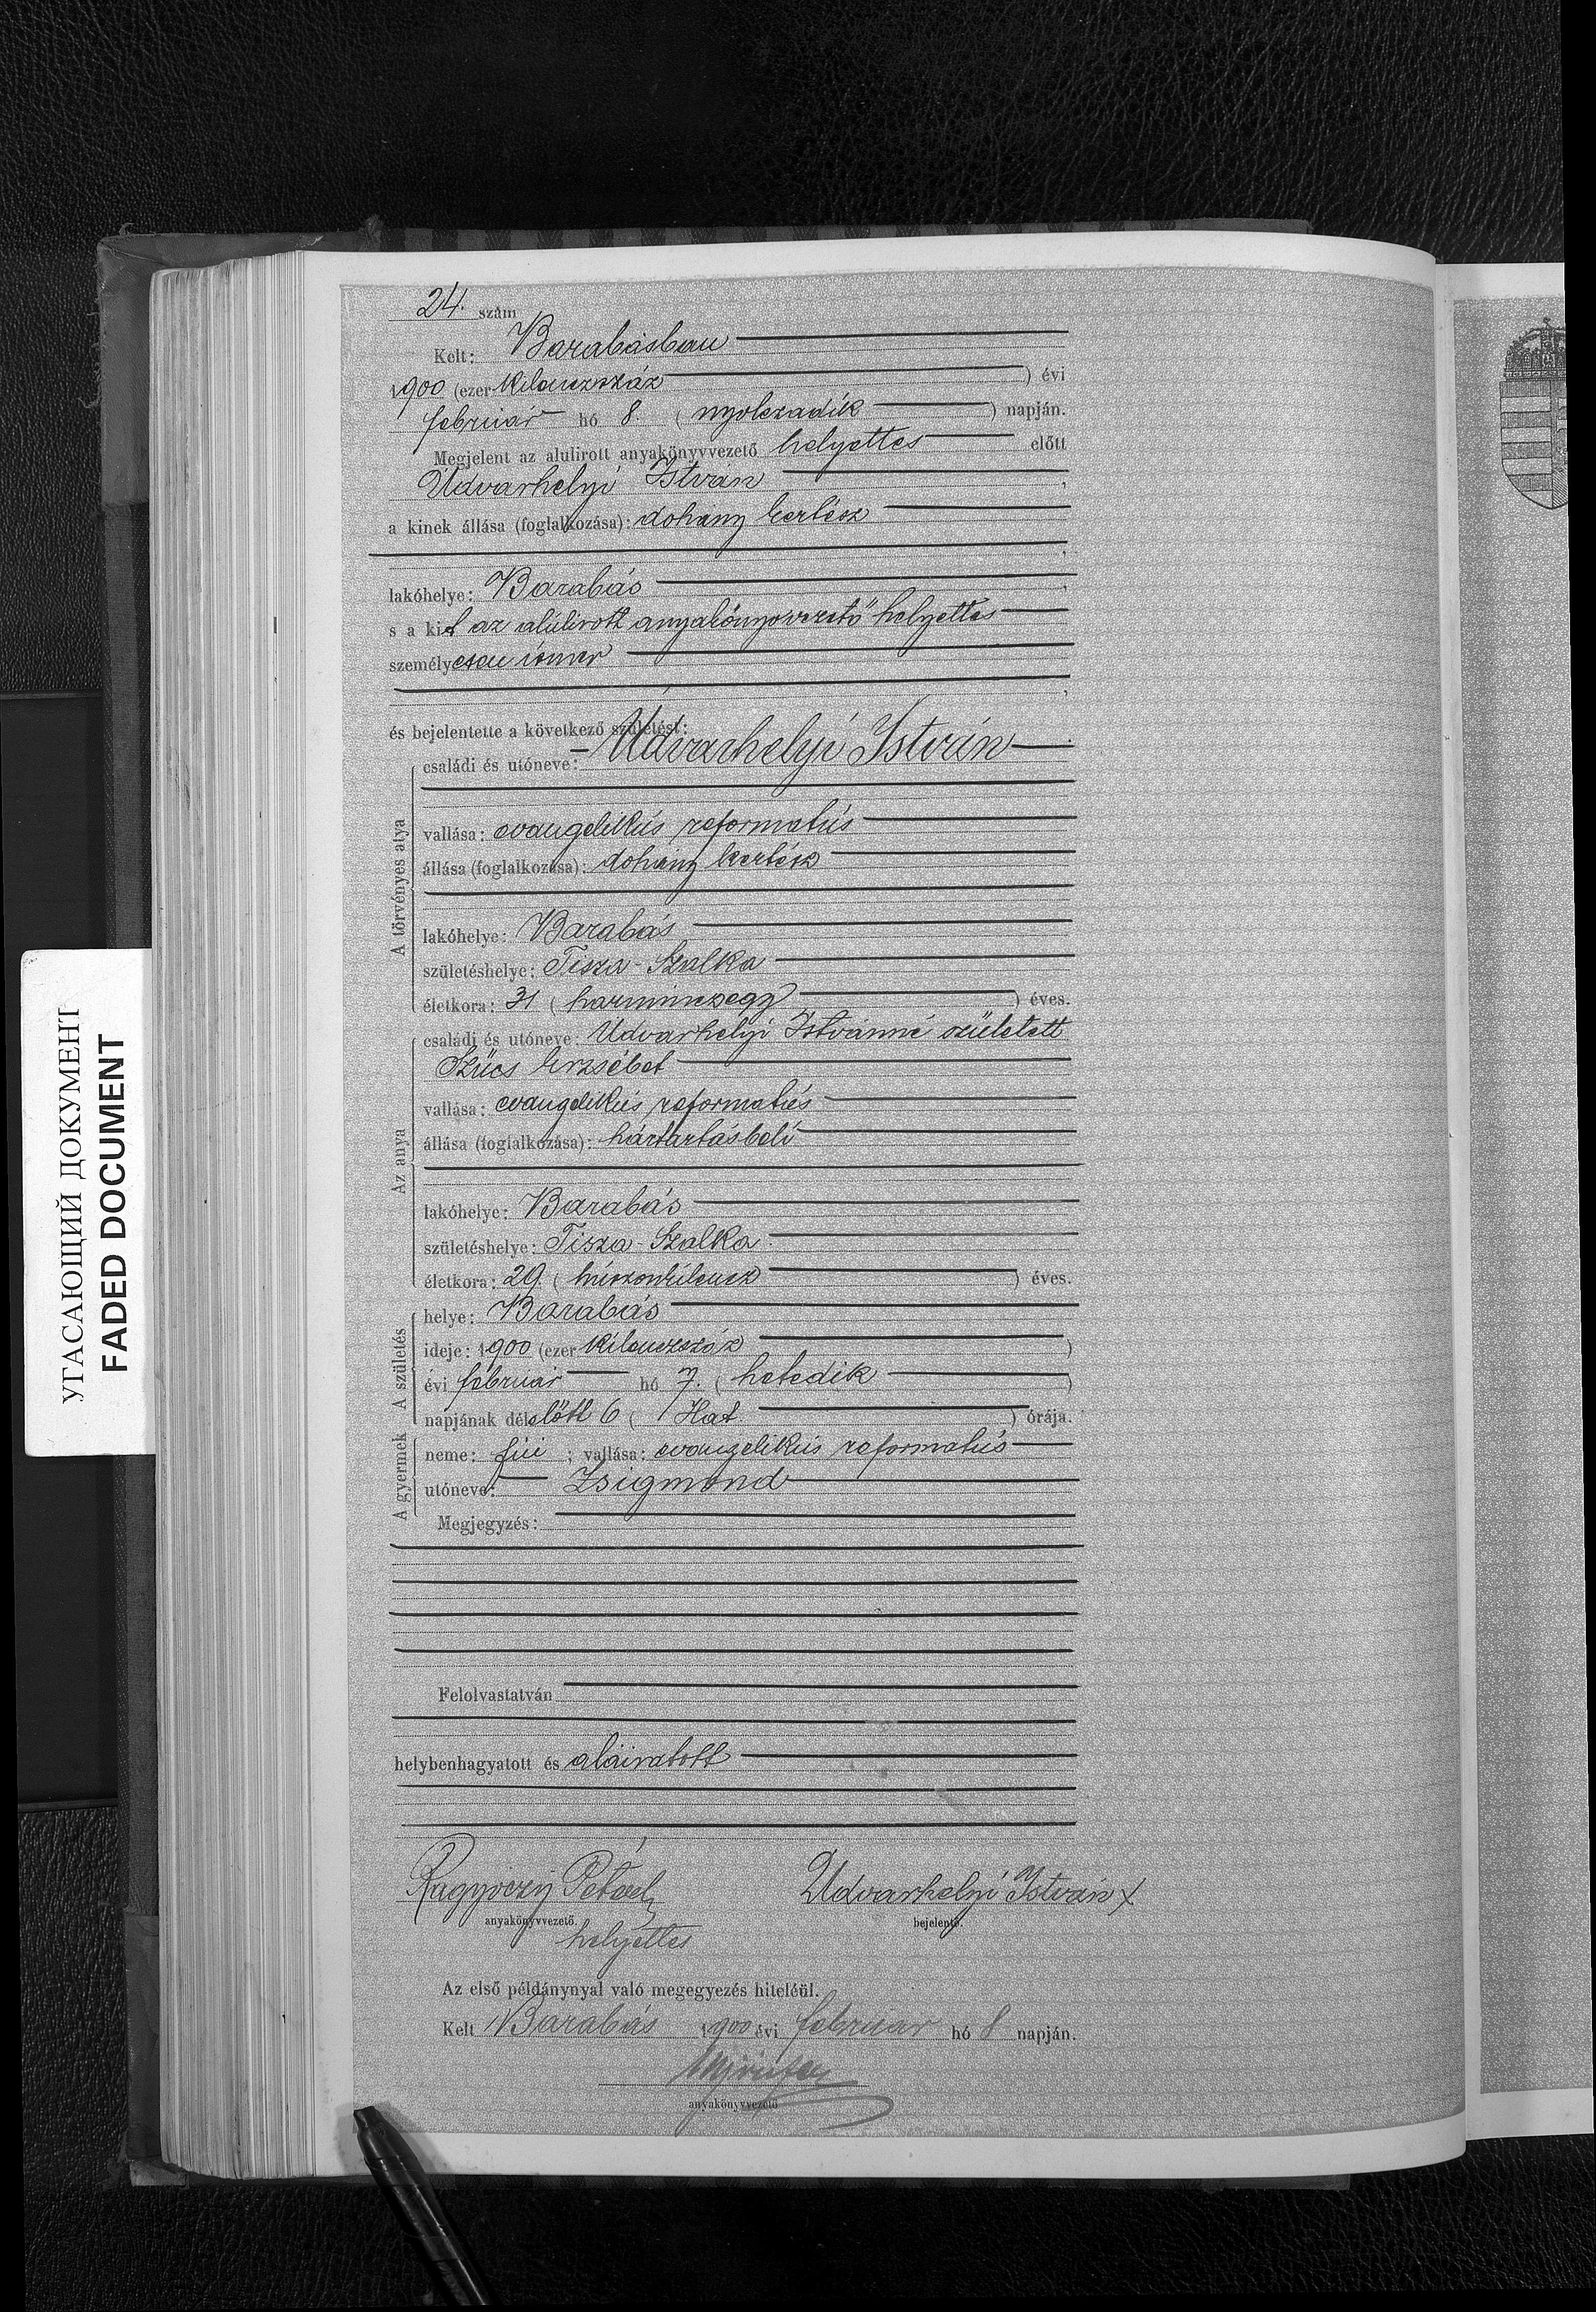 УГАСАЮЩИЙ ДОКУМЕНТ
FADED DOCUMENT
24. szám
Kelt: Barabásban
1900 (ezer kilenczszáz) évi
február hó 8. (nyolczadik) napján.
Megjelent az alulirott anyakönyvvezető helyettes előtt
Udvarhelyi István,
a kinek állása (foglalkozása): dohány kertész
lakóhelye: Barabás,
s a kit az alúlirott anyakönyvvezető helyettes
személyesen ismer,
és bejelentette a következő születést:
A törvényes atya
családi és utóneve: Udvarhelyi István
vallása: evangelikús reformatús
állása (foglalkozása): dohány kertész
lakóhelye: Barabás
születéshelye: Tisza-Szalka
életkora: 31 (harminczegy) éves.
Az anya
családi és utóneve: Udvarhelyi Istvánné született
Szűcs Erzsébet
vallása: evangelikús reformatús
állása (foglalkozása): háztartásbeli
lakóhelye: Barabás
születéshelye: Tisza-Szalka
életkora: 29. (húszonkilencz) éves.
A születés
helye: Barabás
ideje: 1900 (ezer kilenczszáz)
évi február hó 7. (hetedik)
napjának délelőtt 6 (Hat) órája.
A gyermek
neme: fiú; vallása: evangelikús reformatús
utóneve: Zsigmond
Megjegyzés:
Felolvastatván
helybenhagyatott és aláiratott
Udvarhelyi István x
anyakönyvvezető. bejelentő.
helyettes
Az első példánynyal való megegyezés hiteléül.
Kelt Barabás 1900 évi február hó 8 napján.
anyakönyvvezető